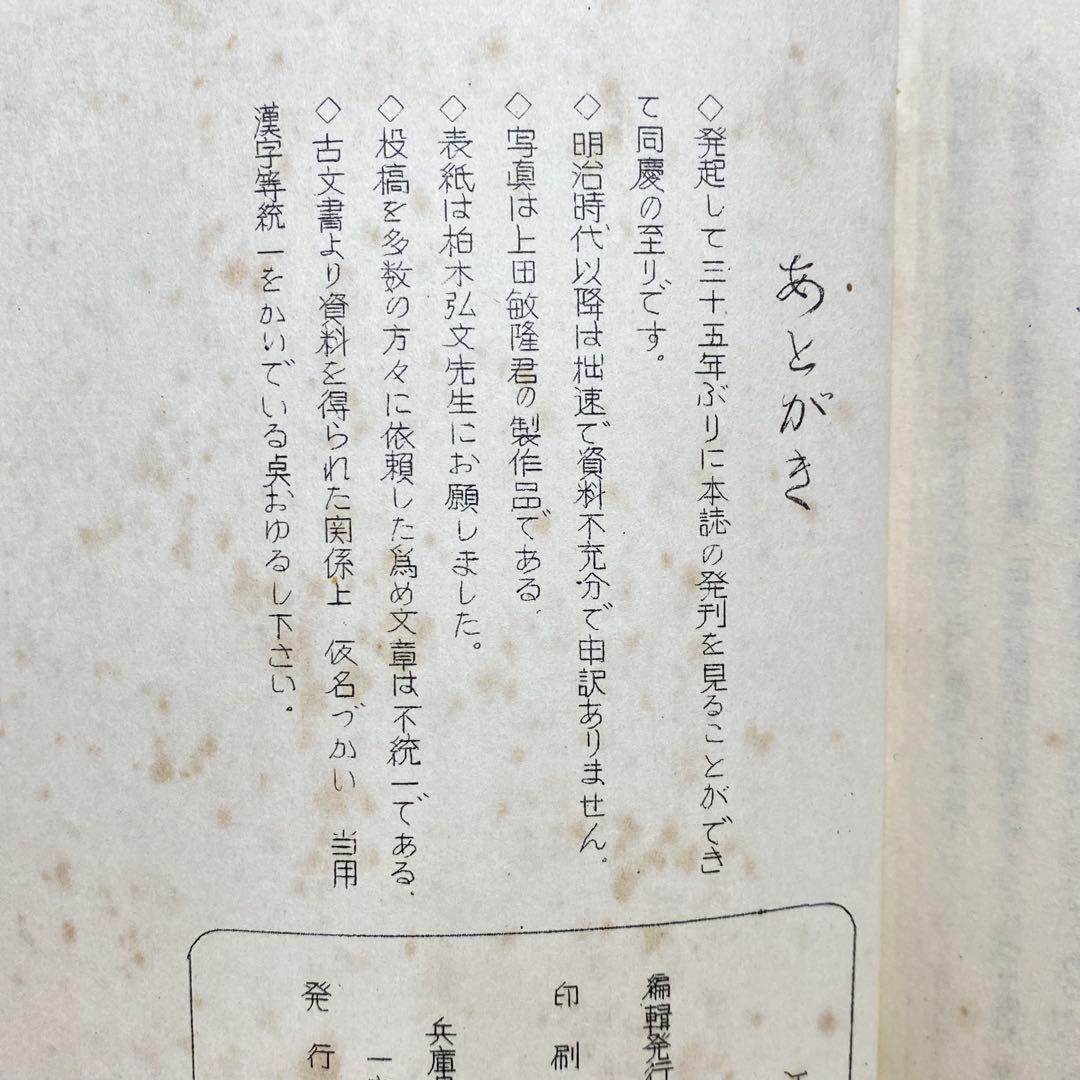 あとがき
◇発起して三十五年ぶりに本誌の発刊を見ることができ
て同慶の至りです。
◇明治時代以降は拙速で資料不充分で申訳ありません。
◇写真は上田敏隆君の製作品である。
◇表紙は柏木弘文先生にお願しました。
◇投稿を多数の方々に依頼した為め文章は不統一である。
◇古文書より資料を得られた関係上　仮名づかい　当用
漢字等統一をかいでいる点おゆるし下さい。
編輯発行
印刷
兵庫
発行